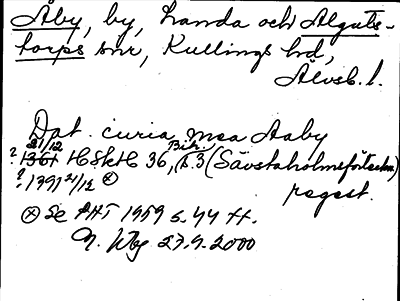 Åby, by, Landa och Alguts-
torps snr, Kullings hd,
Älvsb. l.
Dat. curia mea Aaby
21/12 Bih.
? 1361 HSkH 36, (s. 3 (Sävstaholmsförteckn)
? 1391 21/12 ⊗ regest.
⊗ Se PHT 1959 s. 44 ff.
27.9.2000